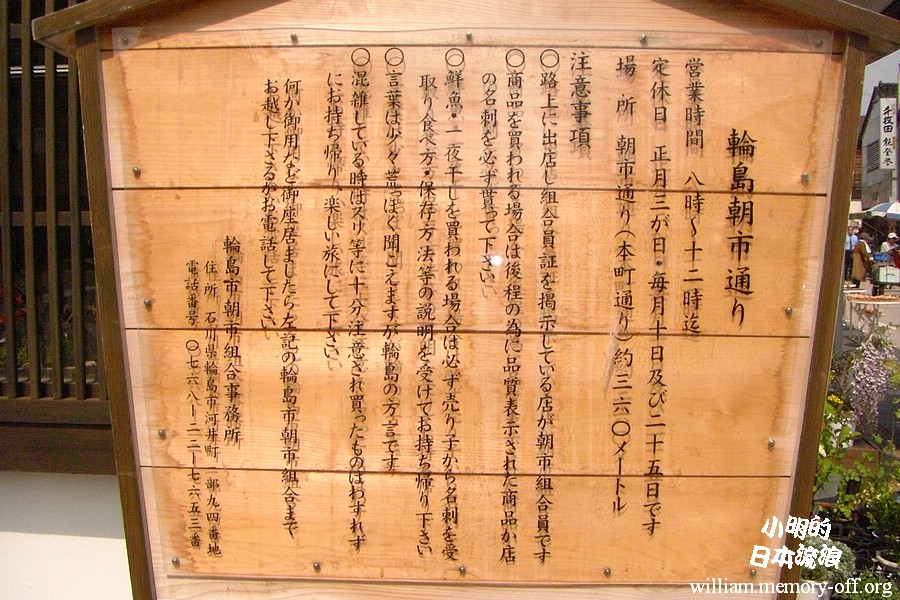 輪島朝市通り
営業時間 八時～十二時迄
定休日 正月三が日・毎月十日及び二十五日です
場所 朝市通り（本町通り）約三六〇メートル
注意事項
〇路上に出店し組合員証を掲示している店が朝市組合員です
〇商品を買われる場合は後程の為に品質表示された商品か店
の名刺を必ず貰って下さい
〇鮮魚・一夜干しを買われる場合は必ず売り子から名刺を受
取り食べ方・保存方法等の説明を受けてお持ち帰り下さい
〇言葉は少々荒っぽく聞こえますが輪島の方言です
〇混雑している時はスリ等に十分注意され買ったものはわすれず
にお持ち帰り、楽しい旅にして下さい。
何か御用など御座居ましたら左記の輪島市朝市組合まで
お越し下さるかお電話して下さい
輪島市朝市組合事務所
住所 石川県輪島市河井町一部九四番地
電話番号 〇七六八ー二二ー七六五三番
千枚田
小明的
日本流浪
william.memory-off.org